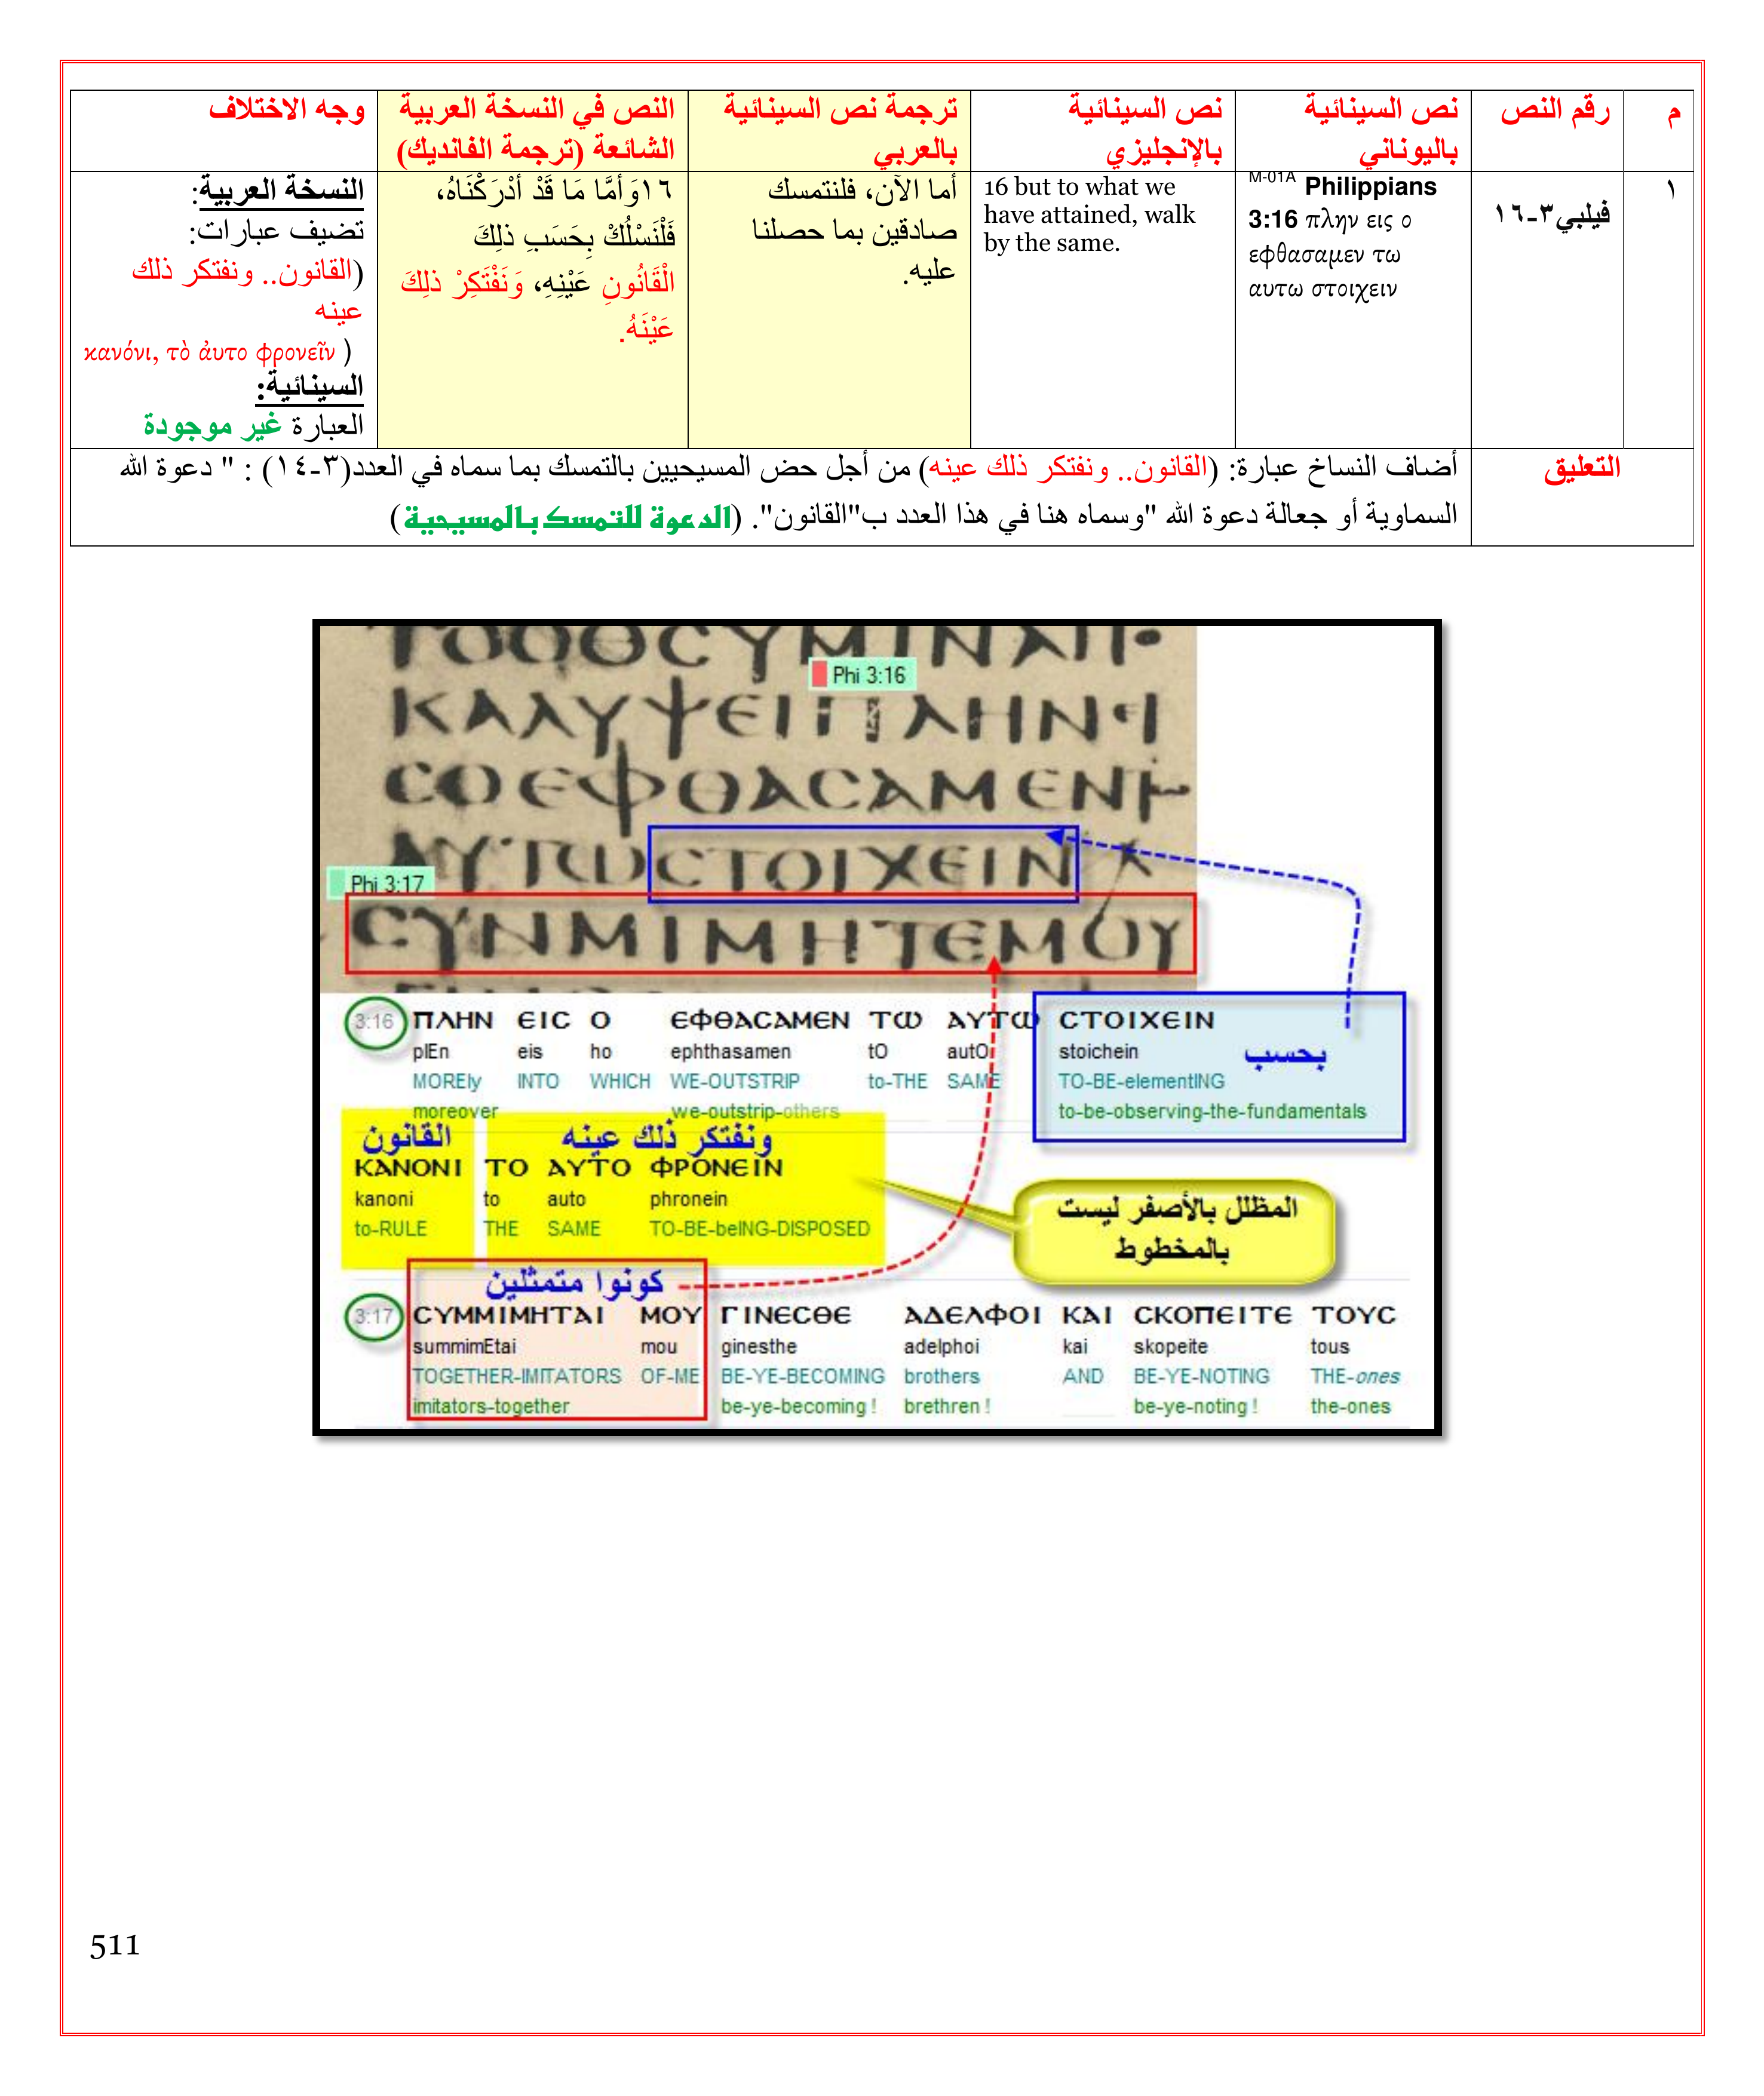 م
رقم النص
نص السينائية
باليوناني
نص السينائية
بالإنجليزي
ترجمة نص السينائية
بالعربي
النص في النسخة العربية
الشائعة (ترجمة الفانديك)
وجه الاختلاف
١
فيلبي٣-١٦
M-01A Philippians
3:16 πλην εις ο
εφθασαμεν τω
αυτω στοιχειν
16 but to what we
have attained, walk
by the same.
أما الآن، فلنتمسك
صادقين بما حصلنا
عليه.
١٦وَأَمَّا مَا قَدْ أَدْرَكْنَاهُ،
فَلْنَسْلُكْ بِحَسَبِ ذلِكَ
الْقَانُونِ عَيْنِهِ، وَنَفْتَكِرْ ذلِكَ
عَيْنَهُ.
النسخة العربية:
تضيف عبارات:
(القانون.. ونفتكر ذلك
عينه
κανόνι, τὸ ἀυτο φρονεῖν )
السينائية:
العبارة غير موجودة
التعليق
أضاف النساخ عبارة: (القانون.. ونفتكر ذلك عينه) من أجل حض المسيحيين بالتمسك بما سماه في العدد(٣-١٤) : " دعوة الله
السماوية أو جعالة دعوة الله "وسماه هنا في هذا العدد ب"القانون". (الدعوة للتمسك بالمسيحية)
Phi 3:16
ΚΑΛΥΨΕΙ ΠΛΗΝ ΕΙ
CΟΕΦΘΑCΑΜΕΝ
ΑΥΤΩCΤΟΙΧΕΙΝ
Phi 3:17
CΥΝΜΙΜΗΤΕΜΟΥ
3:16 ΠΛΗΝ ΕΙC Ο ΕΦΘΑCΑΜΕΝ ΤΩ ΑΥΤΩ CΤΟΙΧΕΙΝ
plEn eis ho ephthasamen tO autO stoichein
بحسب
MOREly INTO WHICH WE-OUTSTRIP to-THE SAME TO-BE-elementING
moreover we-outstrip-others to-be-observing-the-fundamentals
القانون ونفتكر ذلك عينه
ΚΑΝΟΝΙ ΤΟ ΑΥΤΟ ΦΡΟΝΕΙΝ
kanoni to auto phronein
to-RULE THE SAME TO-BE-beING-DISPOSED
المظلل بالأصفر ليست
بالمخطوط
كونوا متمثلين
3:17 CΥΜΜΙΜΗΤΑΙ ΜΟΥ ΓΙΝΕCΘΕ ΑΔΕΛΦΟΙ ΚΑΙ CΚΟΠΕΙΤΕ ΤΟΥC
summimEtai mou ginesthe adelphoi kai skopeite tous
TOGETHER-IMITATORS OF-ME BE-YE-BECOMING brothers AND BE-YE-NOTING THE-ones
imitators-together be-ye-becoming ! brethren ! be-ye-noting ! the-ones
511